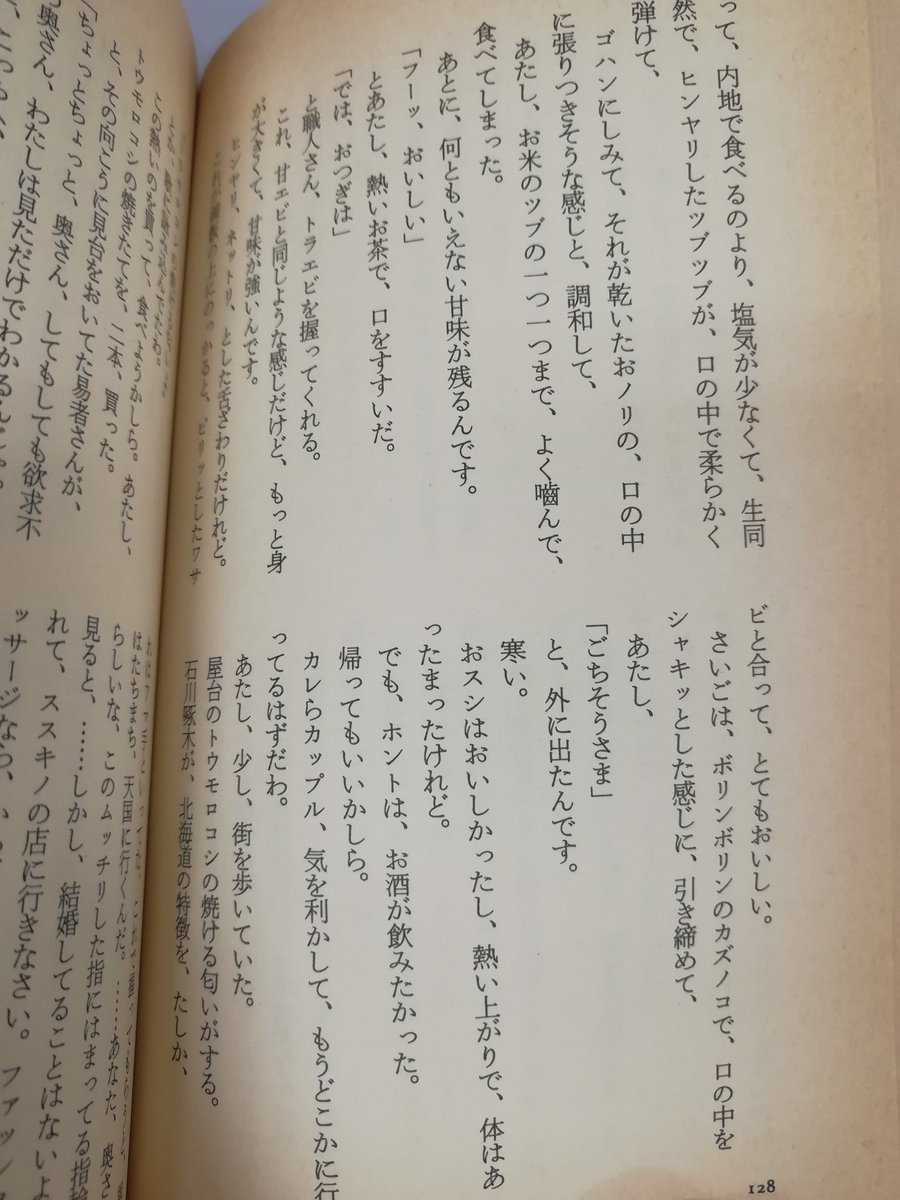 って、内地で食べるのより、塩気が少なくて、生同
然で、ヒンヤリしたツブツブが、口の中で柔らかく
弾けて、
ゴハンにしみて、それが乾いたおノリの、口の中
に張りつきそうな感じと、調和して、
あたし、お米のツブの一つ一つまで、よく嚙んで、
食べてしまった。
あとに、何ともいえない甘味が残るんです。
「フーッ、おいしい」
とあたし、熱いお茶で、口をすすいだ。
「では、おつぎは」
と職人さん、トラエビを握ってくれる。
これ、甘エビと同じような感じだけど、もっと身
が大きくて、甘味が強いんです。
ヒンヤリ、ネットリ、とした舌ざわりだけれど。
のっかると、ピリッとしたワサ
ビと合って、とてもおいしい。
さいごは、ボリンボリンのカズノコで、口の中を
シャキッとした感じに、引き締めて、
あたし、
「ごちそうさま」
と、外に出たんです。
寒い。
おスシはおいしかったし、熱い上がりで、体はあ
ったまったけれど。
でも、ホントは、お酒が飲みたかった。
帰ってもいいかしら。
カレらカップル、気を利かして、もうどこかに行
ってるはずだわ。
あたし、少し、街を歩いていた。
屋台のトウモロコシの焼ける匂いがする。
石川啄木が、北海道の特徴を、たしか、
この熱いのを買って、食べようかしら。あたし、
トウモロコシの焼きたてを、二本、買った。
と、その向こうに見台をおいてた易者さんが、
「ちょっとちょっと、奥さん、してもしても欲求不
奥さん、わたしは見ただけでわかるんじゃ。
はたちまち、天国に行くんだ。……あなた、奥さ
らしいな、このムッチリした指にはまってる指輪
見ると、……しかし、結婚してることはないよ
れて、ススキノの店に行きなさい。ファッシ
ッサージなら、
128